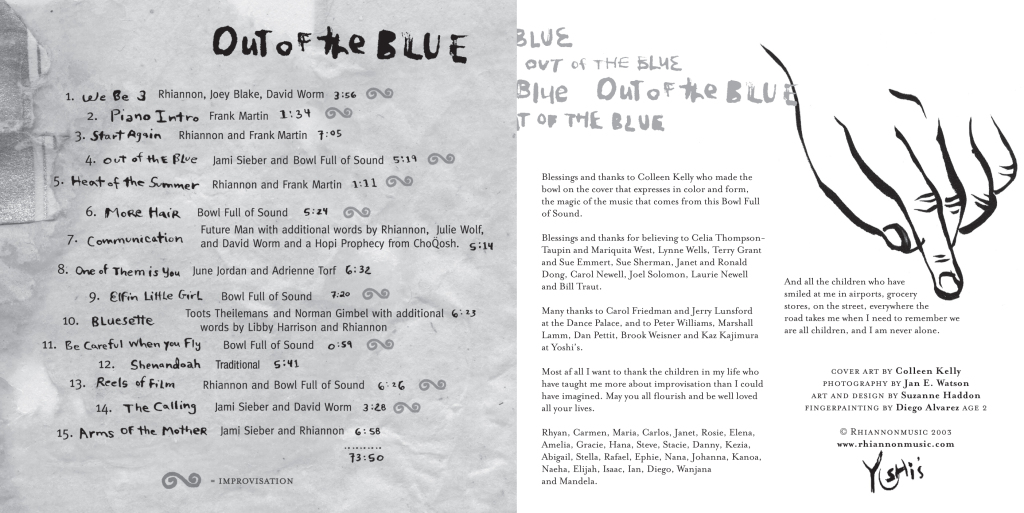 Out of the BLUE
1. We Be 3 Rhiannon, Joey Blake, David Worm 3:56
2. Piano Intro Frank Martin 1:34
3. Start Again Rhiannon and Frank Martin 7:05
4. Out of the Blue Jami Sieber and Bowl Full of Sound 5:19
5. Heat of the Summer Rhiannon and Frank Martin 1:11
6. More Hair Bowl Full of Sound 5:24
7. Communication Future Man with additional words by Rhiannon, Julie Wolf,
and David Worm and a Hopi Prophecy from ChoQosh. 5:14
8. One of Them is You June Jordan and Adrienne Torf 6:32
9. Elfin Little Girl Bowl Full of Sound 7:20
10. Bluesette Toots Theilemans and Norman Gimbel with additional 6:23
words by Libby Harrison and Rhiannon
11. Be Careful When you Fly Bowl Full of Sound 0:59
12. Shenandoah Traditional 5:41
13. Reels of Film Rhiannon and Bowl Full of Sound 6:26
14. The Calling Jami Sieber and David Worm 3:28
15. Arms of the Mother Jami Sieber and Rhiannon 6:58
73:50
= IMPROVISATION
BLUE
OUT of THE BLUE
Blue Out of the BLUE
T OF THE BLUE
Blessings and thanks to Colleen Kelly who made the
bowl on the cover that expresses in color and form,
the magic of the music that comes from this Bowl Full
of Sound.
Blessings and thanks for believing to Celia Thompson-
Taupin and Mariquita West, Lynne Wells, Terry Grant
and Sue Emmert, Sue Sherman, Janet and Ronald
Dong, Carol Newell, Joel Solomon, Laurie Newell
and Bill Traut.
Many thanks to Carol Friedman and Jerry Lunsford
at the Dance Palace, and to Peter Williams, Marshall
Lamm, Dan Pettit, Brook Weisner and Kaz Kajimura
at Yoshi's.
Most af all I want to thank the children in my life who
have taught me more about improvisation than I could
have imagined. May you all flourish and be well loved
all your lives.
Rhyan, Carmen, Maria, Carlos, Janet, Rosie, Elena,
Amelia, Gracie, Hana, Steve, Stacie, Danny, Kezia,
Abigail, Stella, Rafael, Ephie, Nana, Johanna, Kanoa,
Naeha, Elijah, Isaac, Ian, Diego, Wanjana
and Mandela.
And all the children who have
smiled at me in airports, grocery
stores, on the street, everywhere the
road takes me when I need to remember we
are all children, and I am never alone.
COVER ART BY Colleen Kelly
PHOTOGRAPHY BY Jan E. Watson
ART AND DESIGN BY Suzanne Haddon
FINGERPAINTING BY Diego Alvarez AGE 2
© RHIANNONMUSIC 2003
www.rhiannonmusic.com
Yoshi's